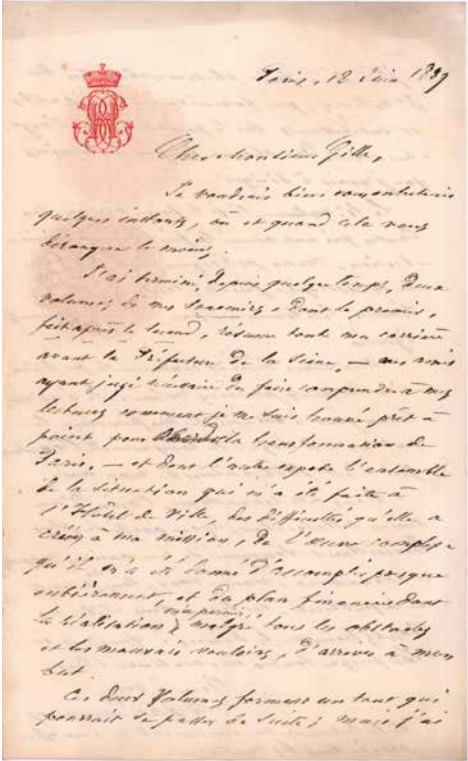 Paris, 18 Juin 1889
Cher Monsieur Gille,
Je voudrais bien vous entretenir
quelques instants, où et quand cela vous
dérangera le moins.
J'ai terminé, depuis quelque temps, deux
volumes de mes Mémoires, dont le premier,
fait après le second, résume toute ma carrière
avant la Préfecture de la Seine, — mes amis
ayant jugé nécessaire de faire comprendre à mes
lecteurs comment je me suis trouvé prêt à
point pour la transformation de
Paris, — et dont l'autre expose l'ensemble
de la situation qui m'a été faite à
l'Hôtel de Ville, des difficultés qu'elle a
créées à ma mission, de l'œuvre complexe
qu'il m'a été donné d'accomplir presque
entièrement, et du plan financier dont
la réalisation m'a permis, malgré tous les obstacles
et les mauvais vouloirs, d'arriver à mon
but.
Ces deux Volumes forment un tout qui
pourrait se passer de suite; mais j'ai